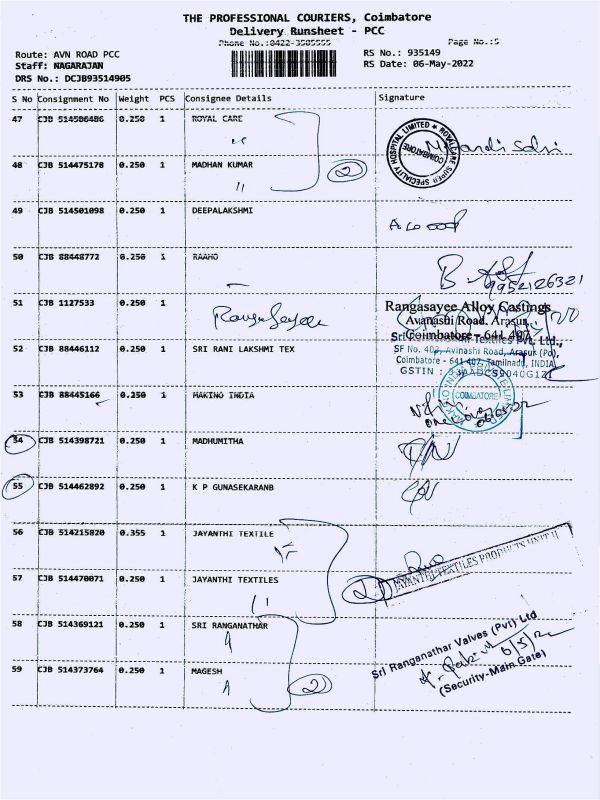 THE PROFESSIONAL COURIERS, Coimbatore
Delivery Runsheet - PCC
Phone No.:0422-3505555 Page No.:5
Route: AVN ROAD PCC RS No.: 935149
Staff: NAGARAJAN RS Date: 06-May-2022
DRS No.: DCJB93514905
S No Consignment No Weight PCS Consignee Details Signature
47 CJB 514506486 0.250 1 ROYAL CARE
ROYALCARE SUPER SPECIALITY HOSPITAL LIMITED
COIMBATORE
48 CJB 514475178 0.250 1 MADHAN KUMAR
11 2
49 CJB 514501098 0.250 1 DEEPALAKSHMI
50 CJB 88448772 0.250 1 RAAHO
9952126321
51 CJB 1127533 0.250 1 Rangasayee
Rangasayee Alloy Castings
Avanashi Road, Arasur,
Coimbatore - 641 407
52 CJB 88446112 0.250 1 SRI RANI LAKSHMI TEX
Textiles Pvt. Ltd.,
SF No. 402, Avinashi Road, Arasur (Po),
Coimbatore - 641 407, Tamilnadu, INDIA
GSTIN :
53 CJB 88445166 0.250 1 MAKINO INDIA
COIMBATORE
54 CJB 514398721 0.250 1 MADHUMITHA
55 CJB 514462892 0.250 1 K P GUNASEKARANB
56 CJB 514215820 0.355 1 JAYANTHI TEXTILE
JAYANTHI TEXTILES PRODUCTS UNIT II
57 CJB 514470071 0.250 1 JAYANTHI TEXTILES
11 2
58 CJB 514369121 0.250 1 SRI RANGANATHAR
Sri Ranganathar Valves (Pvt) Ltd
6/5/22
(Security-Main Gate)
59 CJB 514373764 0.250 1 MAGESH
2